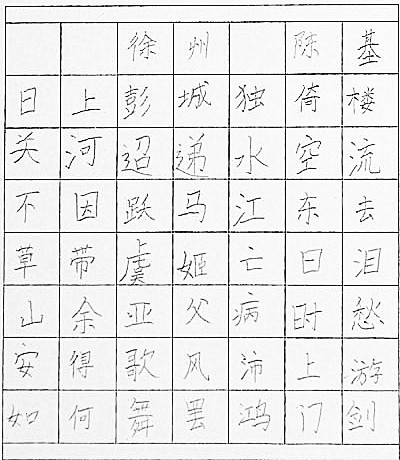 徐州 陈基
日上彭城独倚楼
关河迢递水空流
不因跃马江东去
草带虞姬亡日泪
山余亚父病时愁
安得歌风沛上游
如何舞罢鸿门剑